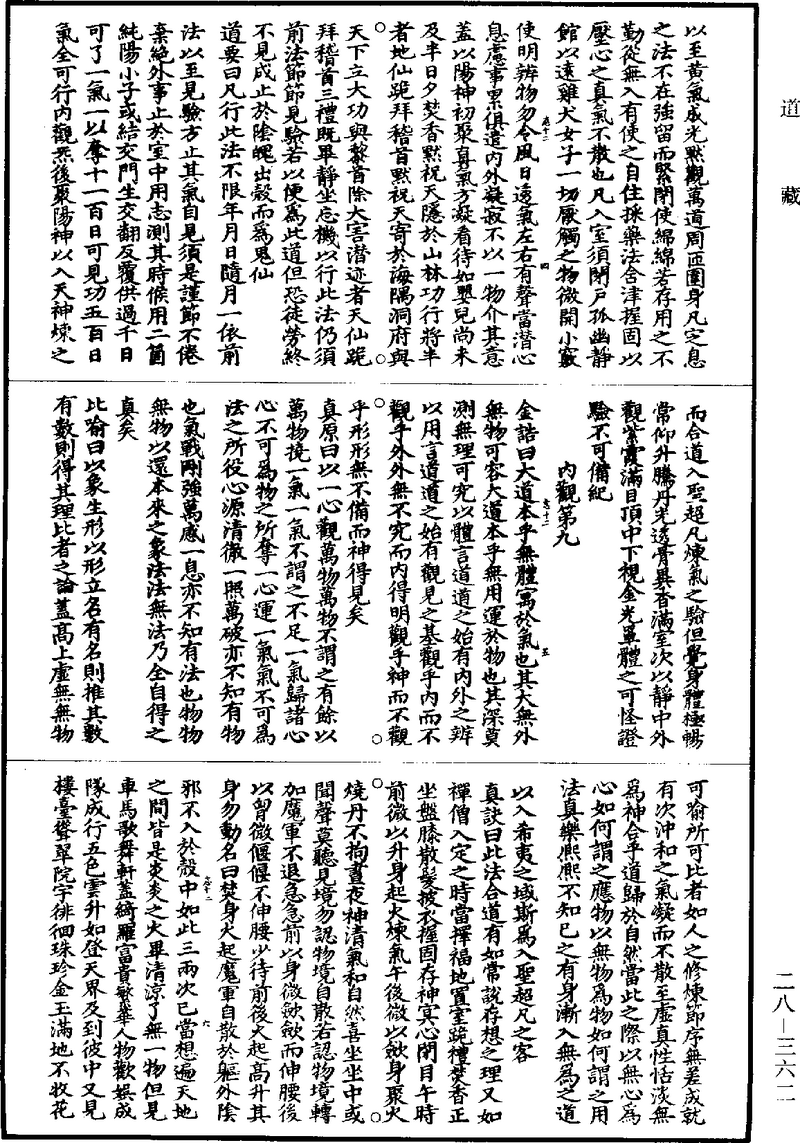 道藏
二八－三六二
以至黄氣成光黙觀萬道周匝圍身凡定息
之法不在強留而緊閉使綿綿若存用之不
勤從無入有使之自住採藥法含津握固以
壓心之真氣不散也凡入室須閉戶孤幽靜
館以遠雞犬女子一切厭觸之物微開小竅
使明辨物勿令風日透氣左右有聲當潜心
息慮事累俱遣内外凝寂不以一物介其意
蓋以陽神初聚真氣方凝看待如嬰兒尚未
及半日夕焚香黙祝天隱於山林功行將半
者地仙跪拜稽首黙祝天寄於海隅洞府與
天下立大功與黎首除大害潜迹者天仙跪
拜稽首三禮既畢靜坐忘機以行此法仍須
前法節節見驗若以便爲此道但恐徒勞終
不見成止於陰魄出殼而爲鬼仙
道要曰凡行此法不限年月日隨月一依前
法以至見驗方止其氣自見須是謹節不倦
棄絶外事止於室中用志測其時候用二箇
純陽小子或結交門生交翻反覆供過千日
可了一氣一以奪十一百日可見功五百日
氣全可行内觀然後聚陽神以入天神煉之
而合道入聖超凡煉氣之驗但覺身體極暢
常仰升騰丹光透骨異香滿室次以靜中外
觀紫霞滿目頂中下視金光罩體之可怪證
驗不可備紀
内觀第九
金誥曰大道本乎無體寓於氣也其大無外
無物可容大道本乎無用運於物也其深莫
測無理可究以體言道道之始有内外之辨
以用言道道之始有觀見之基觀乎内而不
觀乎外外無不究而内得明觀乎神而不觀
乎形形無不備而神得見矣
真原曰以一心觀萬物萬物不謂之有餘以
萬物撓一氣一氣不謂之不足一氣歸諸心
心不可爲物之所奪一心運一氣氣不可爲
法之所役心源清徹一照萬破亦不知有物
也氣戰剛強萬感一息亦不知有法也物物
無物以還本來之象法法無法乃全自得之
真矣
比喻曰以象生形以形立名有名則推其數
有數則得其理比者之論蓋高上虛無無物
可喻所可比者如人之修煉節序無差成就
有次沖和之氣凝而不散至虛真性恬淡無
爲神合乎道歸於自然當此之際以無心爲
心如何謂之應物以無物爲物如何謂之用
法真樂熙熙不知己之有身漸入無爲之道
以入希夷之域斯爲入聖超凡之客
真訣曰此法合道有如常說存想之理又如
禪僧入定之時當擇福地置室跪禮焚香正
坐盤膝散髪披衣握固存神冥心閉目午時
前微以升身起火煉氣午後微以斂身聚火
燒丹不拘晝夜神清氣和自然喜坐坐中或
聞聲莫聽見境勿認物境自散若認物境轉
加魔軍不退急急前以身微斂斂而伸腰後
以胷微偃偃不伸腰少待前後火起高升其
身勿動名曰焚身火起魔軍自散於軀外陰
邪不入於殼中如此三兩次已當想遍天地
之間皆是炎炎之火畢清涼了無一物但見
車馬歌舞軒蓋綺羅富貴繁華人物歡娛成
隊成行五色雲升如登天界及到彼中又見
樓臺聳翠院宇徘徊珠珍金玉滿地不收花